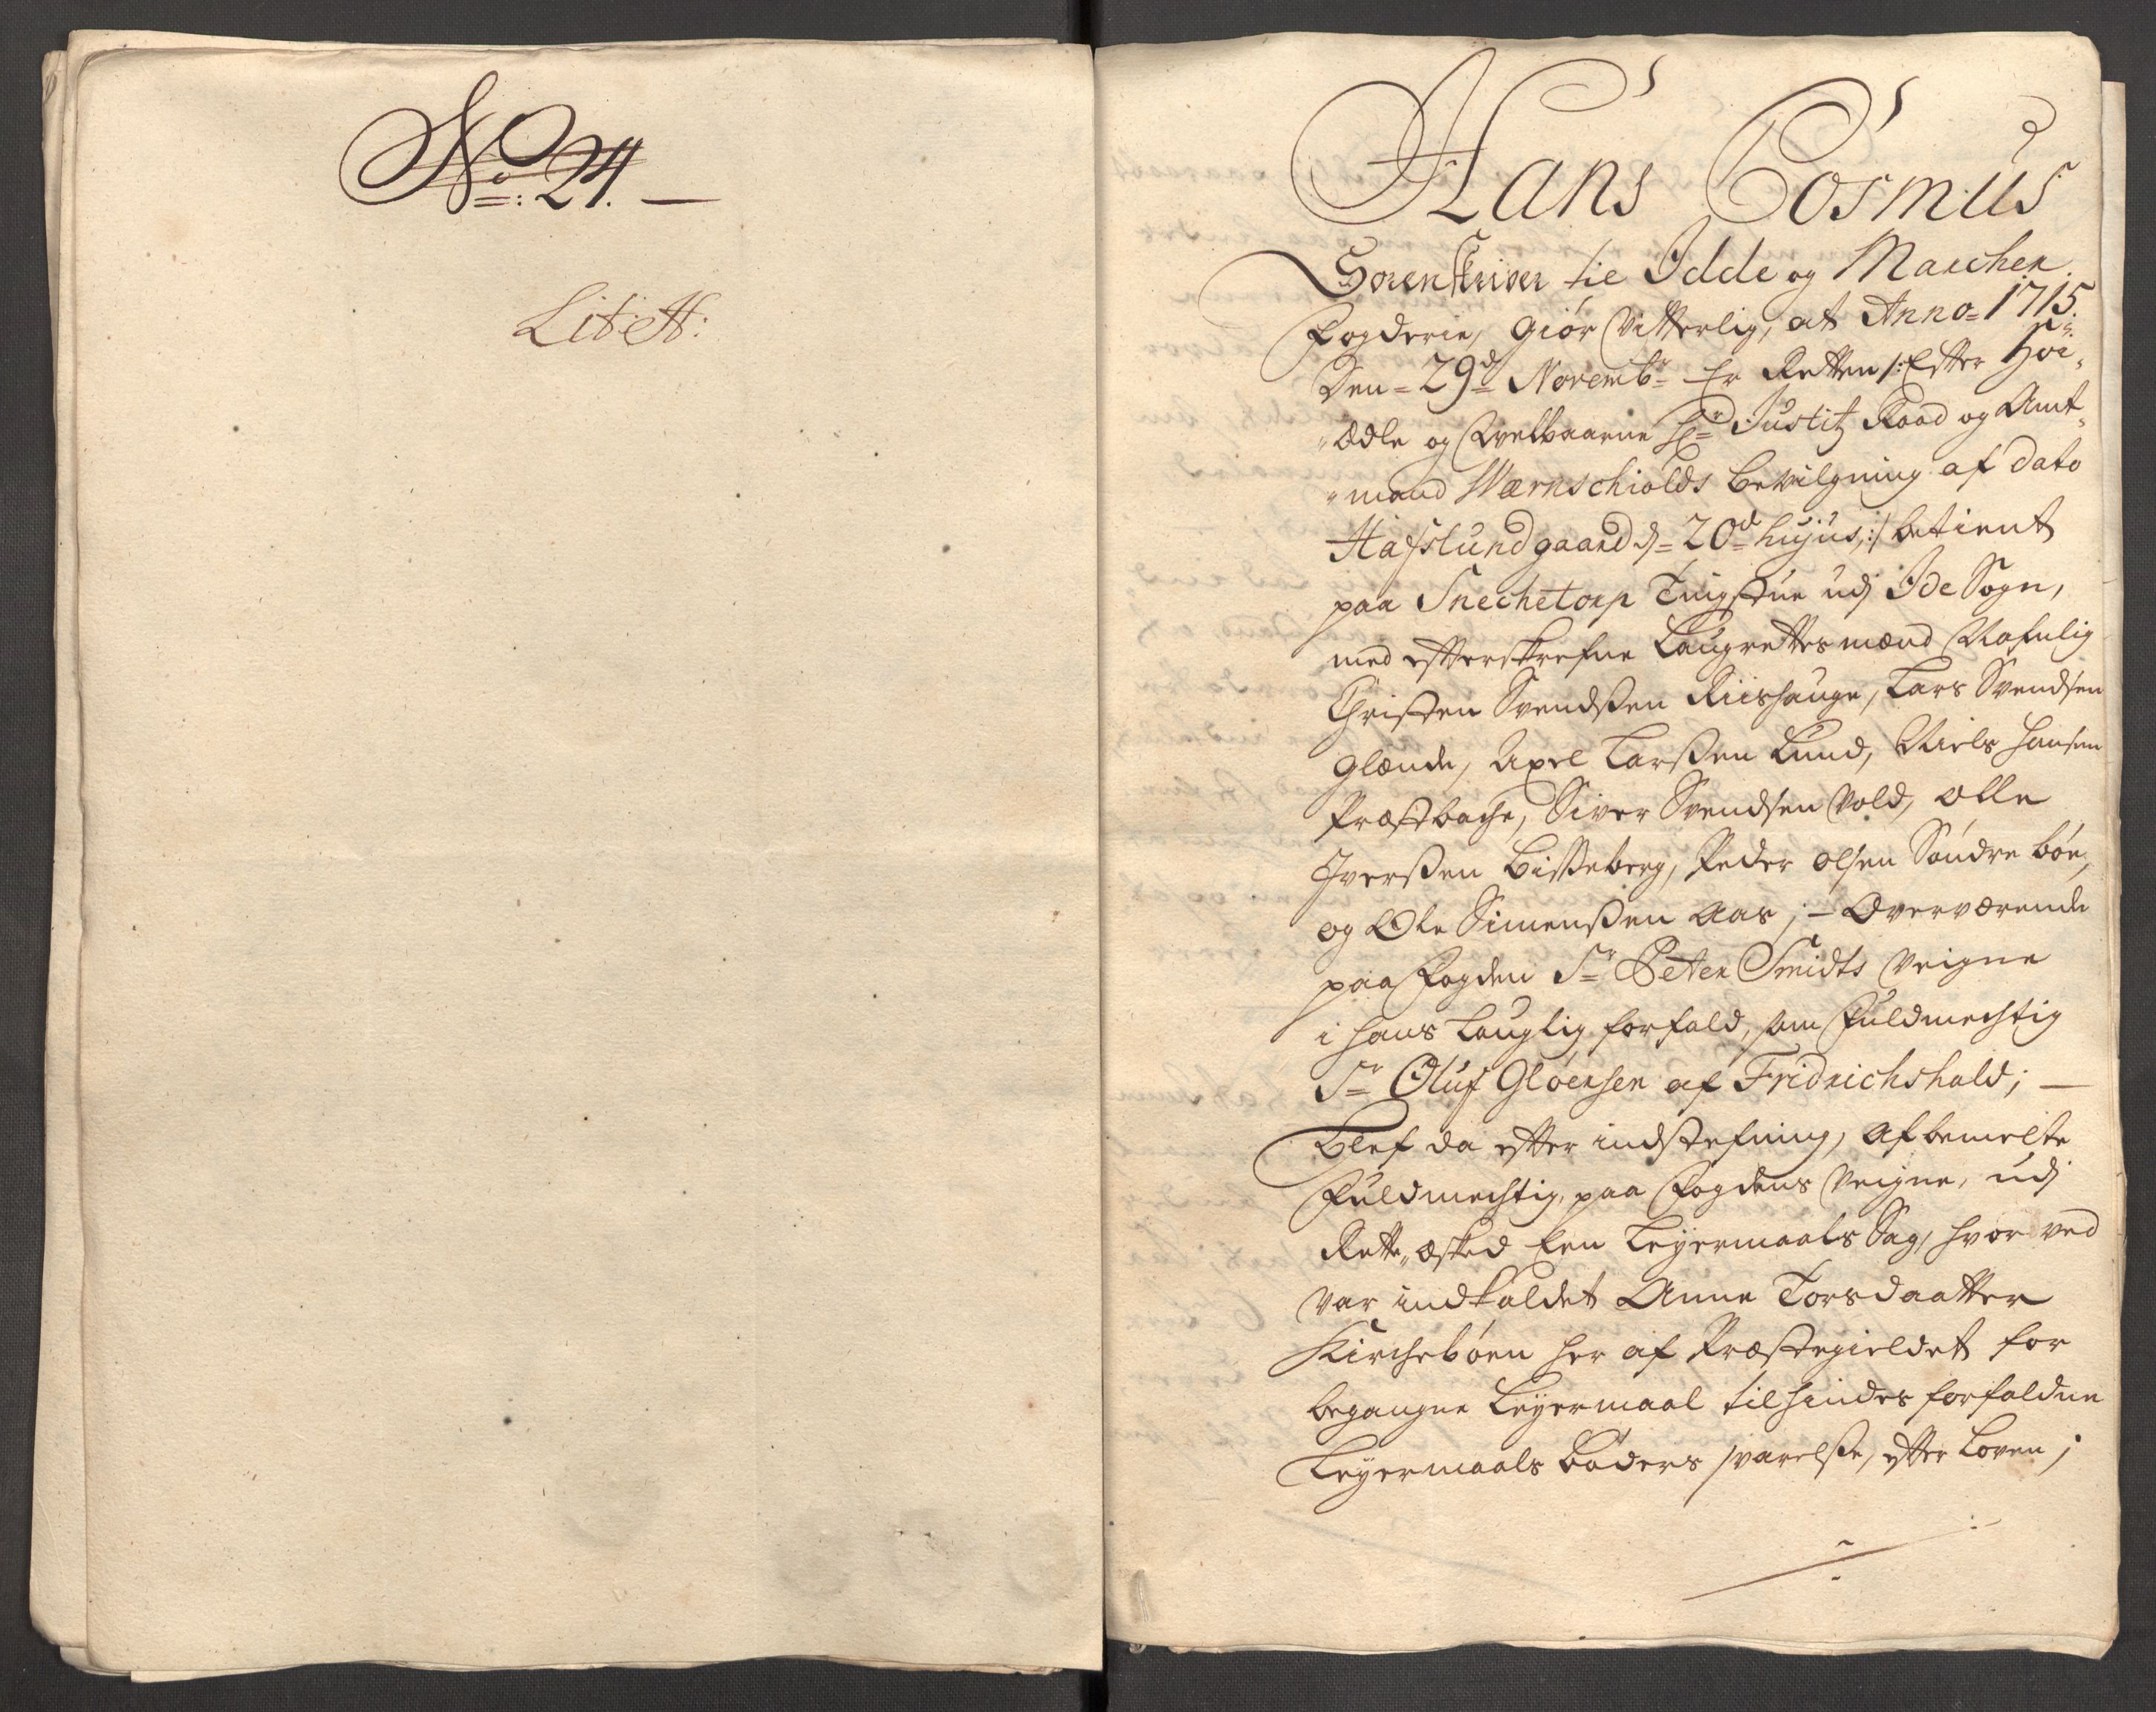 No: 24. —
Lit: H:
Hans Cosmus
Sorenskriver til Idde og Marcher
Fogderie, Giør Vitterlig, at Anno 1715.
Den 29d Novembr Er Retten /: Efter Høi-
ædle og Welbaarne Hr Justitz Raad og Amt-
mand Wærnschiolds Bevilgning af dato
Hafslund gaard d: 20d hujus, :/ betient
paa Snechetorp Tingstue udj Ide Sogn,
med efterskrefne Laugrettesmænd Nafnlig
Christen Svendssen Riishauge, Lars Svendsen
Glænde, Axel Larssen Lund, Niels Hansen
Præstbache, Siver Svendsen Vold, Olle
Iverssen Bisseberg, Peder Olsen Søndre bøe,
og Ole Simenssen Aas; – Overværende
paa Fogden Sr Peter Smidts Veigne
i hans lauglig forfald, som Fuldmechtig
Sr Oluf Gløersen af Fridrichshald; —
Blef da efter indstefning, af bemelte
Fuldmechtig, paa Fogdens Veigne, udj
Rette æsked Een Leyermaals Sag, hvor ved
var indkaldet Anne Torsdaatter
Kirchebøen her af Præstegieldet for
begangne Leyermaal til hindes forfaldne
Leyermaals bøders svarelsse, efter Loven;